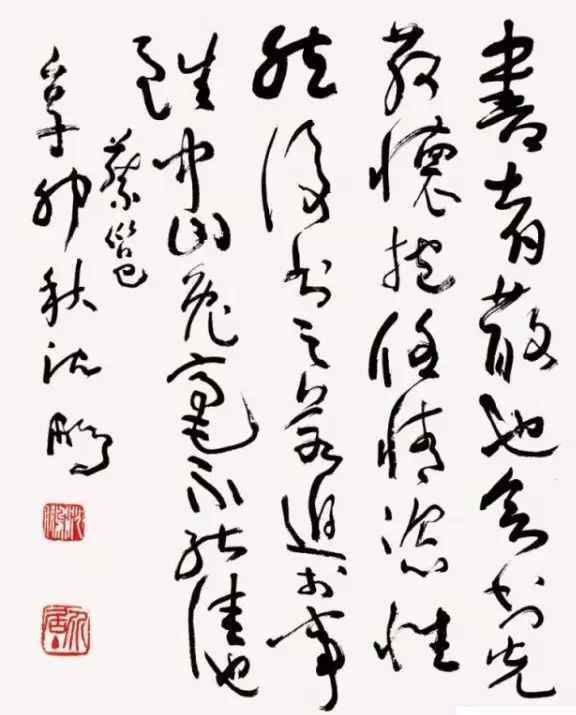 書者散也欲书先
散懷抱任情恣性
然後书之若迫於事
雖中山兔毫不能佳也
蔡邕
辛卯秋沈鵬